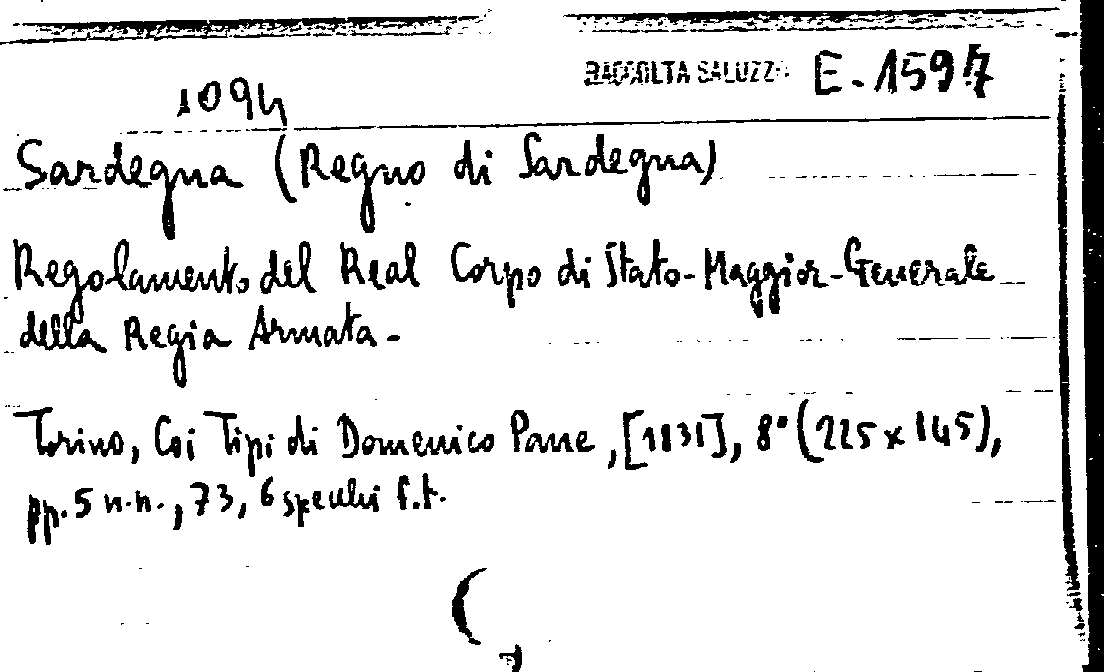 RACCOLTA SALUZZO E. 1597
1094
Sardegna (Regno di Sardegna)
Regolamento del Real Corpo di Stato-Maggior-Generale
della Regia Armata.
Torino, Coi Tipi di Domenico Pane, [1831], 8° (225 x 145),
pp. 5 n.n., 73, 6 specchi f.t.